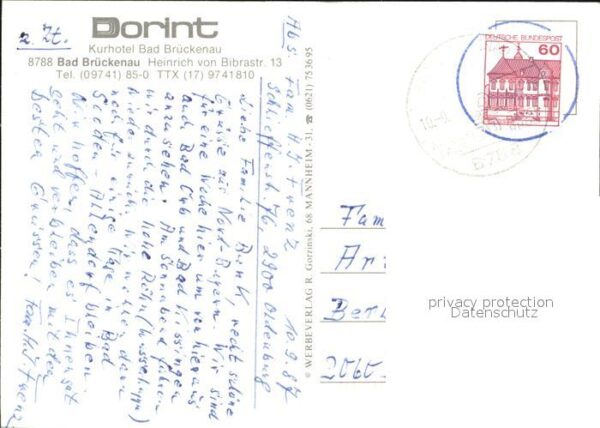 z. Zt.
Dorint
Kurhotel Bad Brückenau
8788 Bad Brückenau Heinrich von Bibrastr. 13
Tel. (09741) 85-0 TTX (17) 9741810
Abs. Fam. H. J. Fuenz 10.9.87
Schlieffenstr. 76, 2900 Oldenburg
Liebe Familie Bank, recht schöne
Grüsse aus Nord-Bayern. Wir sind
für eine Woche hier um von hier aus
auch Bad Orb und Bad Kissingen
anzusehen. Am Sonnabend fahren
wir durch die hohe Röhn (Wasserkuppe)
wieder zurück. Wir wollen dann
noch für einige Tage in Bad
Soden-Allendorf bleiben.
Wir hoffen, dass es Ihnen gut
geht und verbleiben mit den
besten Grüssen! Fam. H. J. Fuenz
© WERBEVERLAG R. Gorzinski, 68 MANNHEIM 31, ☎ (0621) 753695
DEUTSCHE BUNDESPOST
60
10.-9.
8788
Fam
Ar
Ber
2060
privacy protection
Datenschutz